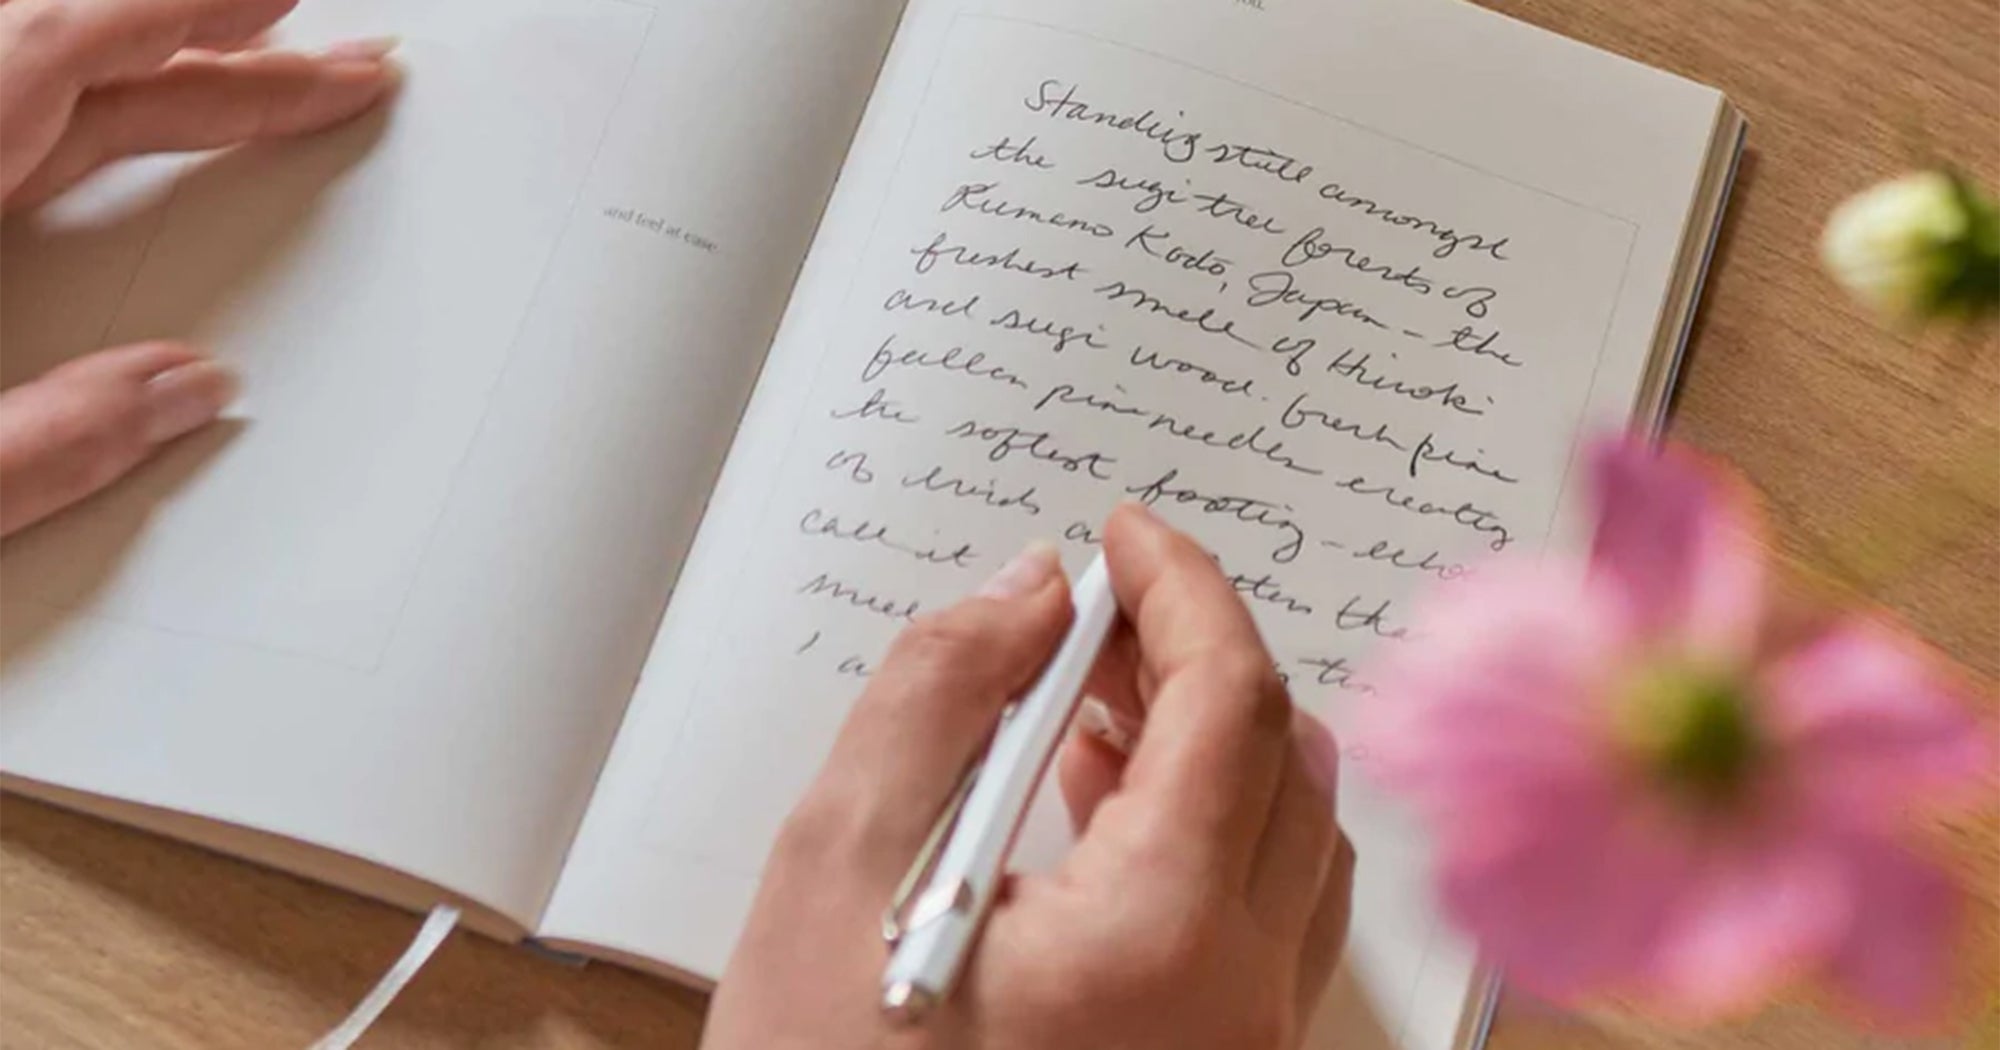 you.
and feel at ease
Standing still amongst
the sugi-tree forests of
Kumano Kodo, Japan - the
freshest smell of Hinoki
and sugi wood. fresh pine
fallen pine needles creating
the softest footing - echo
of birds
call it
smell
I a